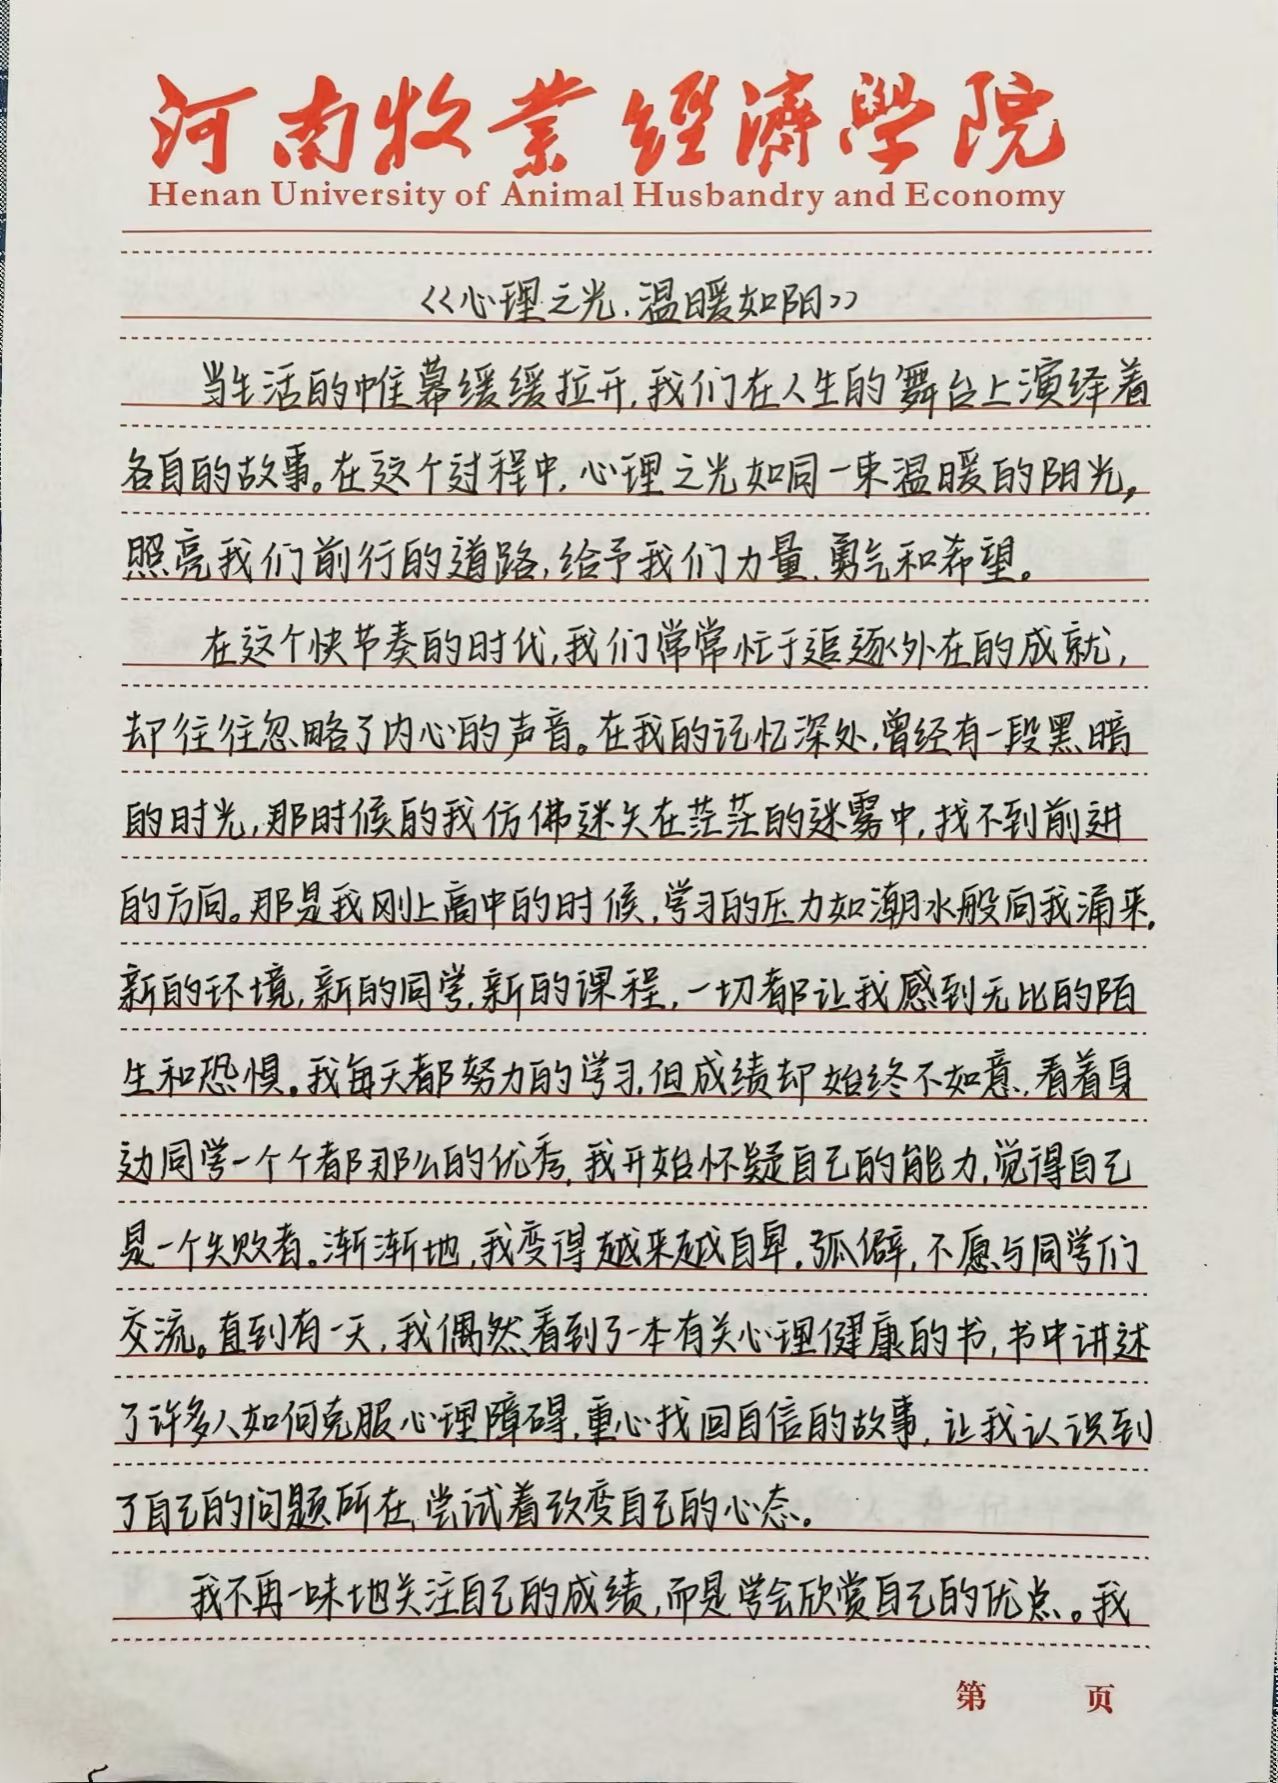 河南牧业经济学院
Henan University of Animal Husbandry and Economy
《心理之光,温暖如阳》
当生活的帷幕缓缓拉开,我们在人生的舞台上演绎着
各自的故事。在这个过程中,心理之光如同一束温暖的阳光,
照亮我们前行的道路,给予我们力量、勇气和希望。
在这个快节奏的时代,我们常常忙于追逐外在的成就,
却往往忽略了内心的声音。在我的记忆深处,曾经有一段黑暗
的时光,那时候的我仿佛迷失在茫茫的迷雾中,找不到前进
的方向。那是我刚上高中的时候,学习的压力如潮水般向我涌来,
新的环境,新的同学,新的课程,一切都让我感到无比的陌
生和恐惧。我每天都努力的学习,但成绩却始终不如意,看着身
边同学一个个都那么的优秀,我开始怀疑自己的能力,觉得自己
是一个失败者。渐渐地,我变得越来越自卑,孤僻,不愿与同学们
交流。直到有一天,我偶然看到了一本有关心理健康的书,书中讲述
了许多人如何克服心理障碍,重心找回自信的故事,让我认识到
了自己的问题所在,尝试着改变自己的心态。
我不再一味地关注自己的成绩,而是学会欣赏自己的优点。我
第 页